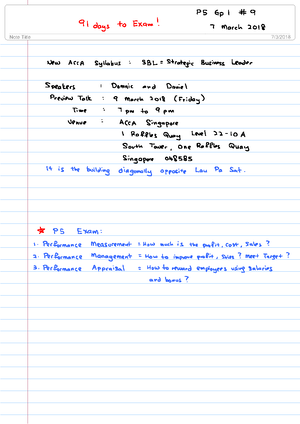 P5 Gp 1 #9
91 days to Exam!
7 March 2018
7/3/2018
New ACCA Syllabus : SBL = Strategic Business Leader
Speakers : Dominic and Daniel
Preview Talk : 9 March 2018 (Friday)
Time : 7 pm to 9 pm
Venue : ACCA Singapore
1 Raffles Quay Level 22-10A
South Tower, One Raffles Quay
Singapore 048583
It is the building diagonally opposite Lau Pa Sat.
★ P5 Exam:
1. Performance Measurement = How much is the profit, cost, sales?
2. Performance Management = How to improve profit, sales? meet Target?
3. Performance Appraisal = How to reward employees using salaries
and bonus?